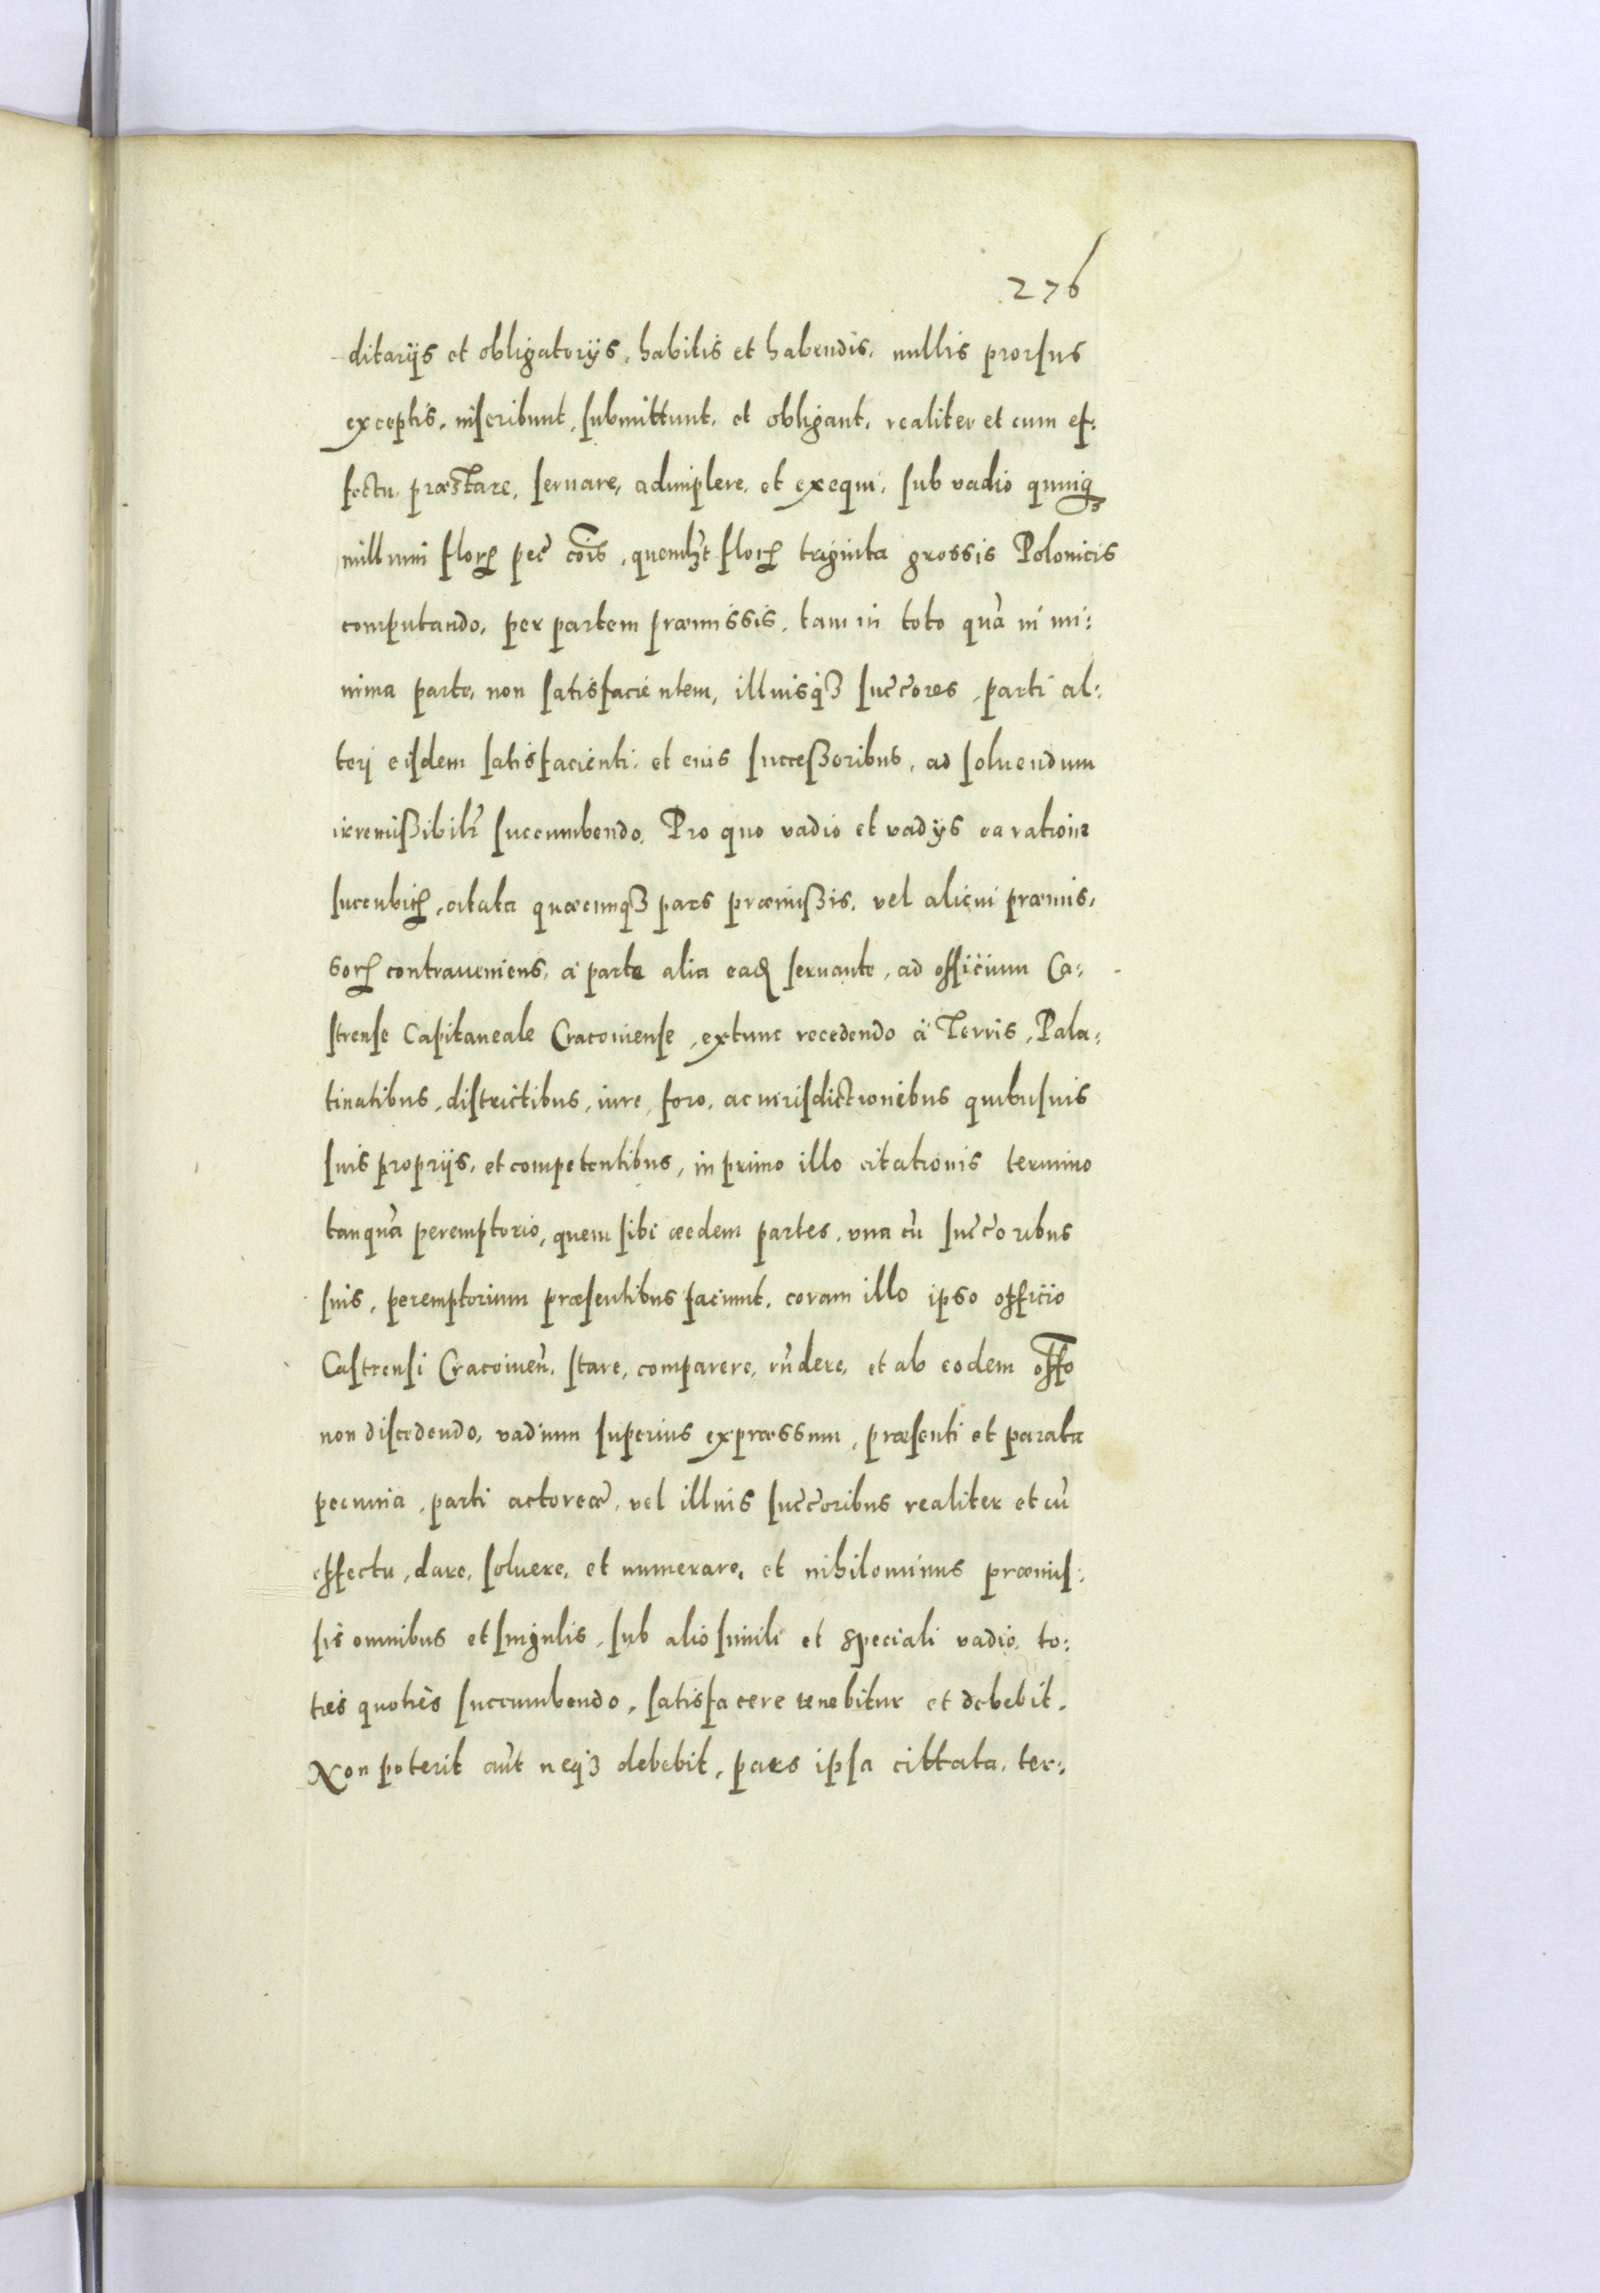 276
ditarijs et obligatorys, habitis et habendis, nullis prorsus
exceptis, inscribunt, submittunt, et obligant, realiter et cum ef:
fectu, præstare, seruare, adimplere, et exequi, sub vadio quinqꝫ
millium florꝝ pec̃ cõis, quemlꝫt florꝝ triginta grossis Polonicis
computando, per partem præmissis, tam in toto quã in mi:
nima parte, non satisfacientem, illiusqꝫ succ̃ores, parti al:
teri eisdem satisfacienti, et eius successoribus, ad soluendum
irremissibilr̃ succumbendo. Pro quo vadio et vadys ea ratione
succubitꝝ, citata quæcunqꝫ pars præmissis, vel alicui præmis,
sorꝝ contraueniens, à parte alia eadꝫ seruante, ad officium Ca:
strense Capitaneale Cracouiense, extunc recedendo à Terris, Pala:
tinatibus, districtibus, iure, foro, ac iurisdictionibus quibusuis
suis proprijs, et competentibus, in primo illo citationis termino
tanquã peremptorio, quem sibi ædem partes, vna cũ succ̃oribus
suis, peremptorium præsentibus faciunt, coram illo ipso officio
Castrensi Cracouieñ. stare, comparere, rñdere, et ab eodem offo̅
non discedendo, vadium superius expræssum, præsenti et parata
pecunia, parti actoreæ, vel illius succ̃oribus realiter et cũ
effectu, dare, soluere, et numerare, et nihilominus præmis:
sis omnibus et singulis, sub alio simili et speciali vadio, to:
ties quoties succumbendo, satisfacere tenebitur et debebit.
Non poterit aũt neqꝫ debebit, pars ipsa cittata, ter: